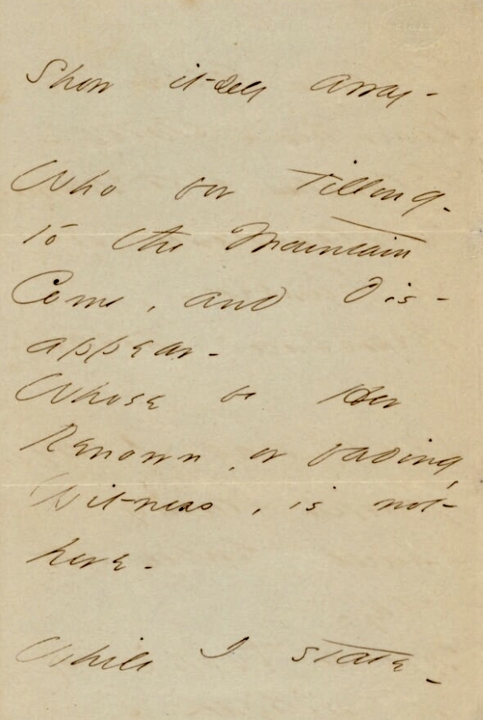 Show itself away -
Who for Tilling -
to the Mountain
Come, and dis-
appear -
Whose be Her
Renown, or fading,
Witness, is not
here -
While I state -